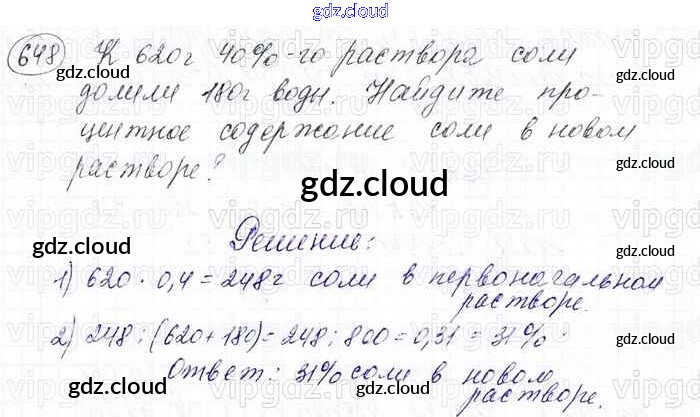 gdz.cloud
648 К 620г 40%-го раствора соли
долили 180г воды. Найдите про-
центное содержание соли в новом
растворе?
gdz.cloud
gdz.cloud
gdz.cloud
Решение:
gdz.cloud
gdz.cloud
1) 620 · 0,4 = 248г соли в первоначальном
растворе.
2) 248 : (620 + 180) = 248 : 800 = 0,31 = 31%.
Ответ: 31% соли в новом
растворе.
gdz.cloud
gdz.cloud